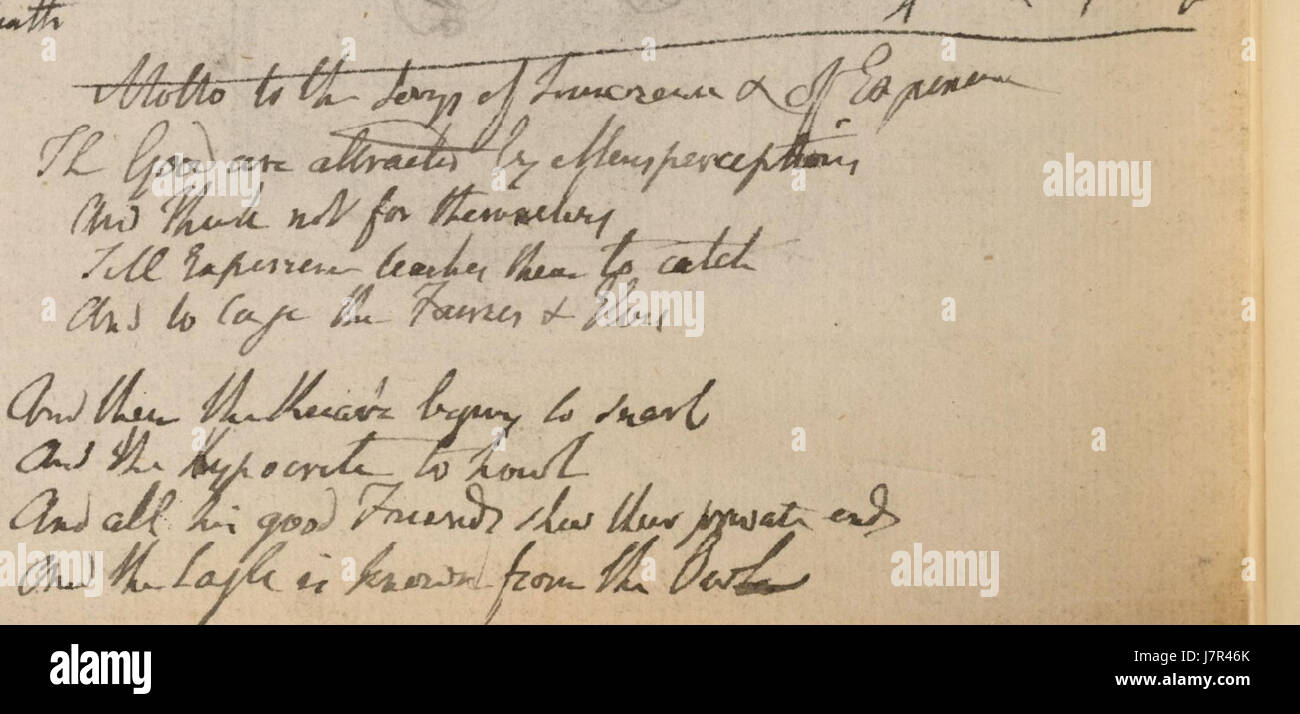 Motto to the Songs of Innocence & of Experience
The Good are attracted by Mens perceptions
And Think not for themselves
Till Experience teaches them to catch
And to Cage the Fairies & Elves
And then the Knave begins to snarl
And the Hypocrite to howl
And all his good Friends shew their private ends
And the Eagle is known from the Owl
alamy
Image ID: J7R46K
www.alamy.com